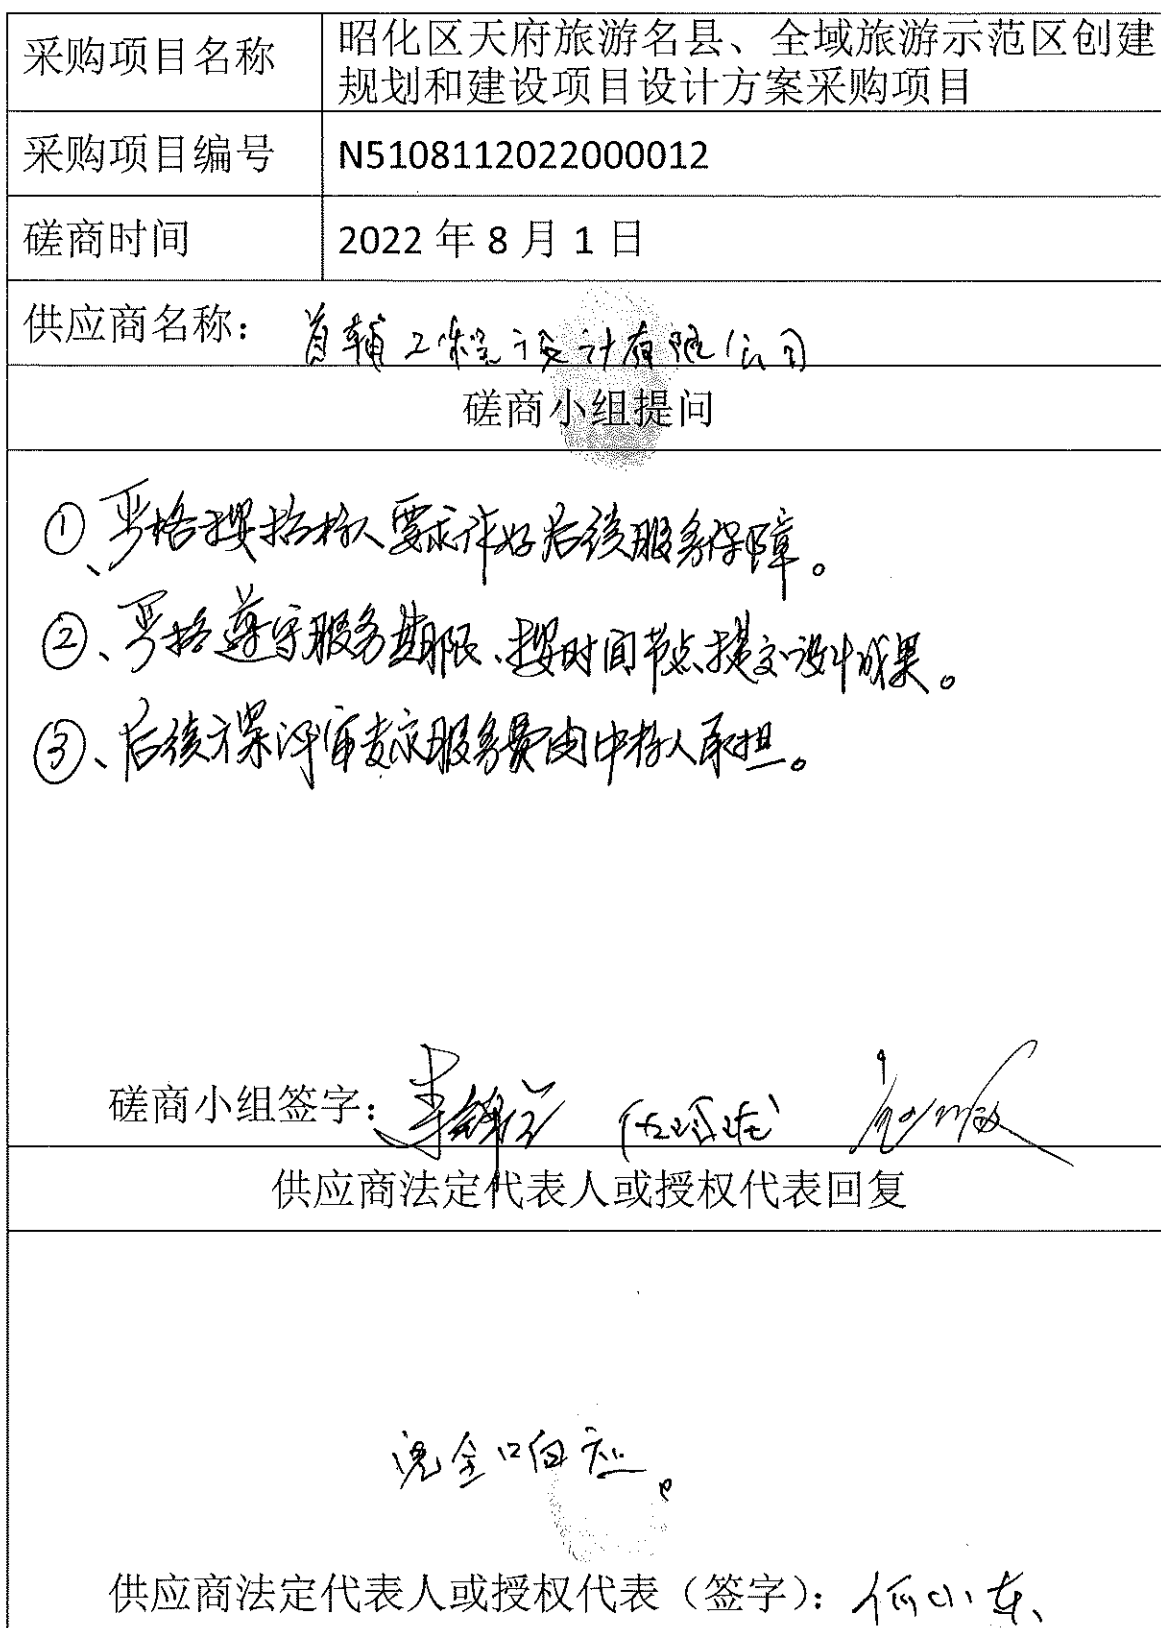 采购项目名称
昭化区天府旅游名县、全域旅游示范区创建
规划和建设项目设计方案采购项目
采购项目编号
N5108112022000012
磋商时间
2022 年 8 月 1 日
供应商名称： 首辅工程设计有限公司
磋商小组提问
①、严格按招标人要求作好后续服务保障。
②、严格遵守服务期限、按时间节点提交设计成果。
③、后续方案评审专家服务费由中标人承担。
磋商小组签字：
供应商法定代表人或授权代表回复
完全响应。
供应商法定代表人或授权代表（签字）：何小东